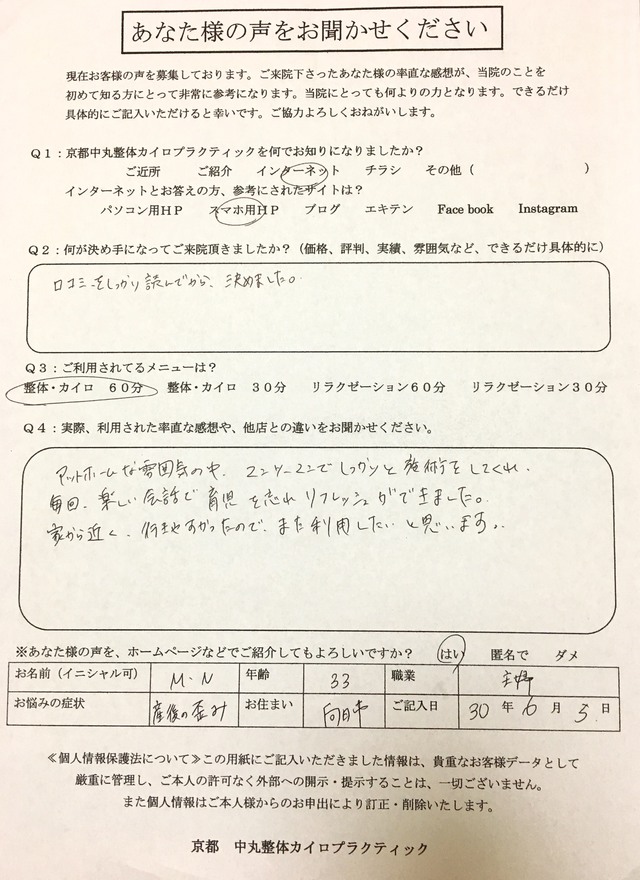 あなた様の声をお聞かせください
現在お客様の声を募集しております。ご来院下さったあなた様の率直な感想が、当院のことを
初めて知る方にとって非常に参考になります。当院にとっても何よりの力となります。できるだけ
具体的にご記入いただけると幸いです。ご協力よろしくおねがいします。
Q1：京都中丸整体カイロプラクティックを何でお知りになりましたか？
ご近所 ご紹介 インターネット チラシ その他（ ）
インターネットとお答えの方、参考にされたサイトは？
パソコン用HP スマホ用HP ブログ エキテン Face book Instagram
Q2：何が決め手になってご来院頂きましたか？（価格、評判、実績、雰囲気など、できるだけ具体的に）
口コミをしっかり読んでから、決めました。
Q3：ご利用されてるメニューは？
整体・カイロ 60分 整体・カイロ 30分 リラクゼーション60分 リラクゼーション30分
Q4：実際、利用された率直な感想や、他店との違いをお聞かせください。
アットホームな雰囲気の中、マンツーマンでしっかりと施術をしてくれ、
毎回、楽しい会話で育児を忘れリフレッシュができました。
家から近く、行きやすかったので、また利用したいと思います。
※あなた様の声を、ホームページなどでご紹介してもよろしいですか？ はい 匿名で ダメ
お名前（イニシャル可） M・N 年齢 33 職業 主婦
お悩みの症状 産後の歪み お住まい 向日市 ご記入日 30年6月5日
≪個人情報保護法について≫この用紙にご記入いただきました情報は、貴重なお客様データとして
厳重に管理し、ご本人の許可なく外部への開示・提示することは、一切ございません。
また個人情報はご本人様からのお申出により訂正・削除いたします。
京都 中丸整体カイロプラクティック